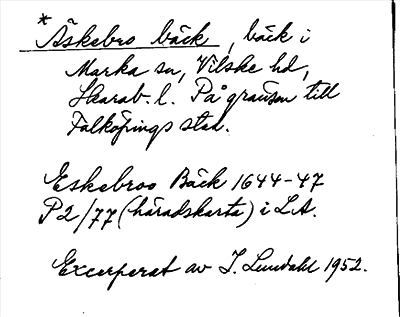 * Äskebro bäck, bäck i
Marka sn, Vilske hd,
Skarab. l. På gränsen till
Falköpings stad.
Eskebroo Bäck 1644-47
P2/77 (häradskarta) i L.A.
Excerperat av I. Lundahl 1952.